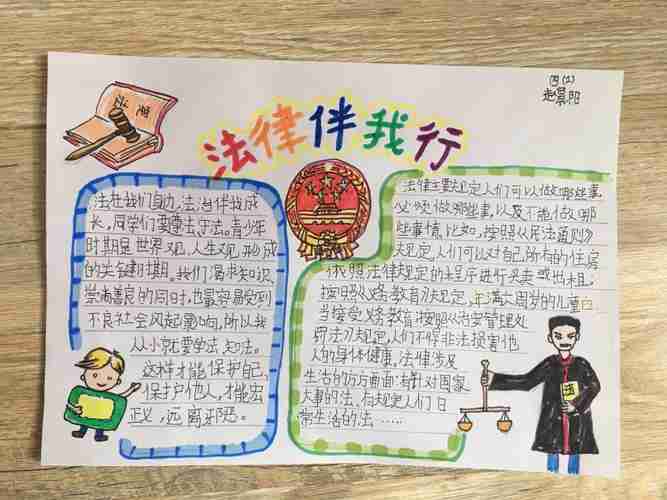 四(2)
赵景阳
法律伴我行
法在我们身边,法治伴我成
长,同学们要尊法守法。青少年
时期是世界观、人生观形成
的关键时期。我们渴求知识,
崇尚善良的同时,也最容易受到
不良社会风起影响,所以我
从小就要学法知法。
这样才能保护自己,
保护他人,才能宏
正义,远离邪恶。
法律主要规定人们可以做哪些事,
必须做哪些事,以及不能做哪
些事情,比如,按照《民法通则》
规定,人们可以对自己所有的住房
依照法律规定的程序进行买卖或出租。
按照《义务教育法》规定,年满六周岁的儿童
当接受义务教育;按照《治安管理处
罚法》规定,人们不得非法损害他
人的身体健康。法律涉及
生活的方方面面:有针对国家
大事的法,有规定人们日
常生活的法……
法